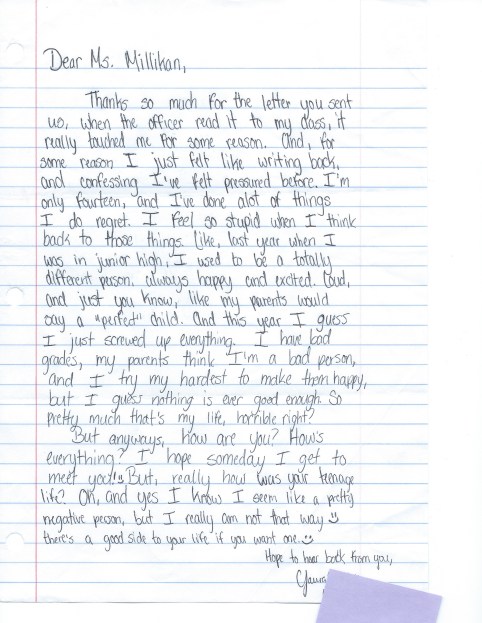 Dear Ms. Millikan,
Thanks so much for the letter you sent
us, when the officer read it to my class, it
really touched me for some reason. And, for
some reason I just felt like writing back,
and confessing I've felt pressured before. I'm
only fourteen, and I've done alot of things
I do regret. I feel so stupid when I think
back to those things. Like, last year when I
was in junior high, I used to be a totally
different person, always happy and excited. Loud,
and just you know, like my parents would
say a "perfect" child. And this year I guess
I just screwed up everything. I have bad
grades, my parents think I'm a bad person,
and I try my hardest to make them happy,
but I guess nothing is ever good enough. So
pretty much that's my life, horrible right?
But anyways, how are you? How's
everything? I hope someday I get to
meet you!!! But, really how was your teenage
life? Oh, and yes I know I seem like a pretty
negative person, but I really am not that way
there's a good side to your life if you want one.
Hope to hear back from you,